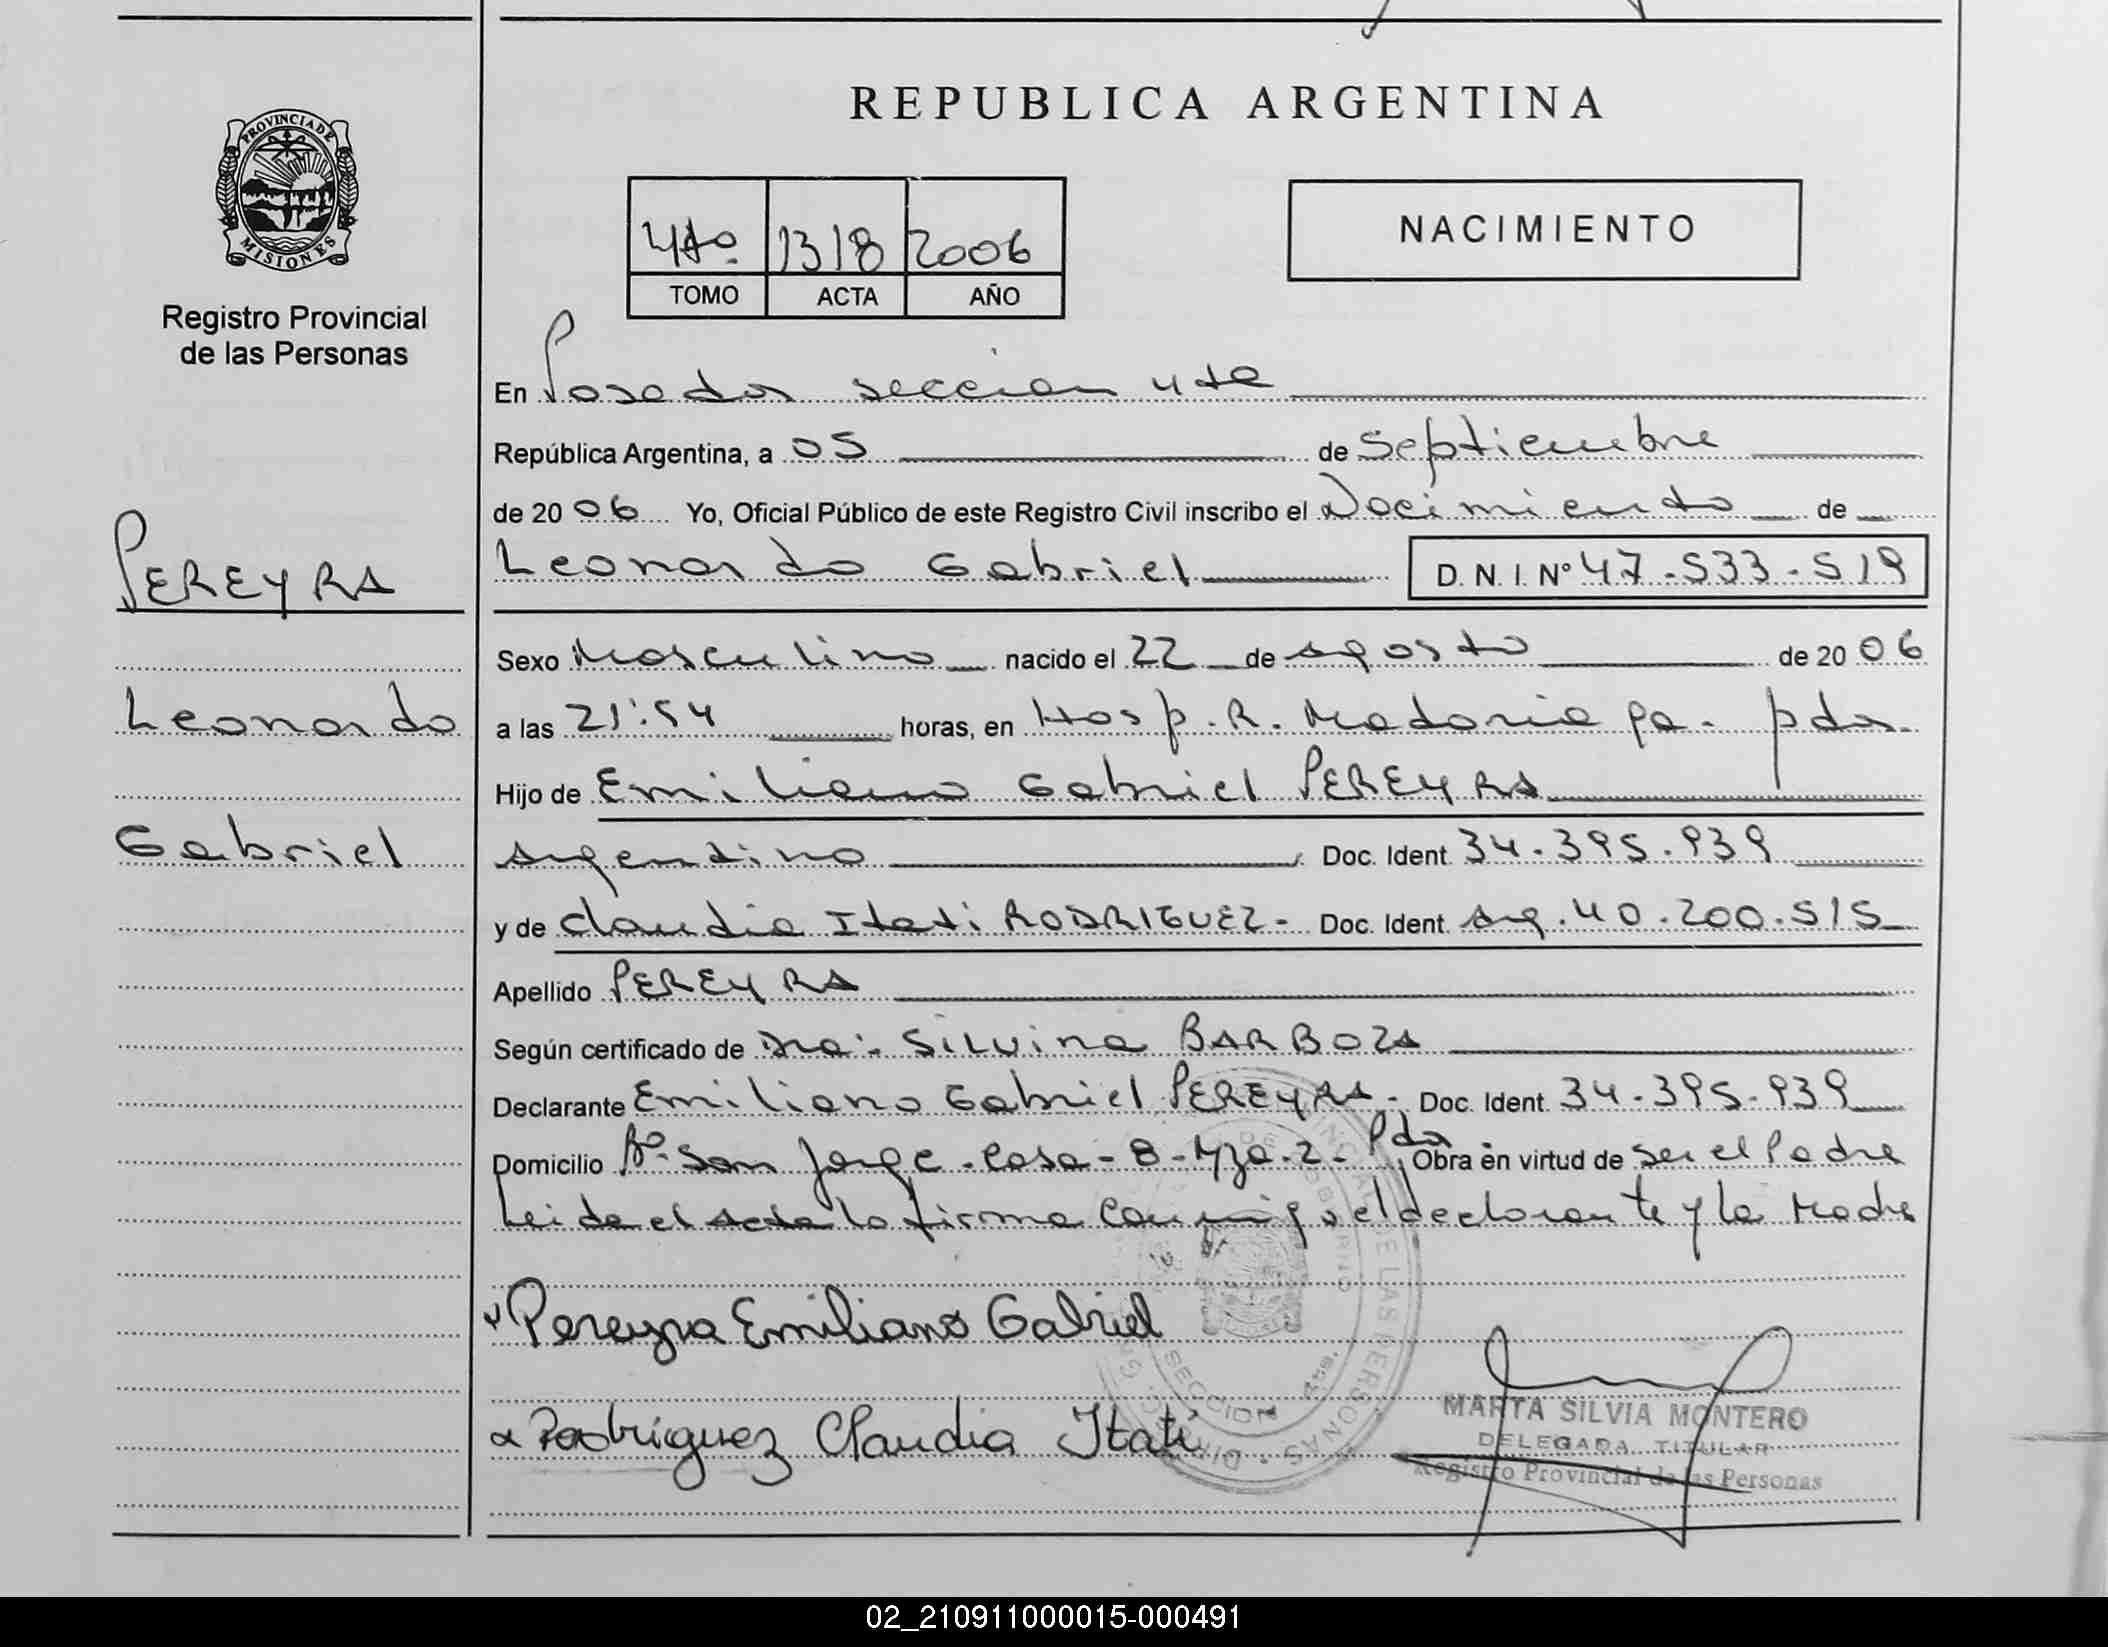 REPUBLICA ARGENTINA
PROVINCIA DE
MISIONES
Registro Provincial
de las Personas
4to 1318 2006
TOMO ACTA AÑO
NACIMIENTO
PEREYRA
Leonardo
Gabriel
En Posadas seccion 4ta
República Argentina, a 05 de Septiembre
de 2006 Yo, Oficial Público de este Registro Civil inscribo el Nacimiento de
Leonardo Gabriel D. N. I. Nº 47.533.519
Sexo Masculino nacido el 22 de agosto de 2006
a las 21:54 horas, en Hosp. R. Madariaga - pdas.
Hijo de Emiliano Gabriel PEREYRA
argentino Doc. Ident. 34.395.939
y de Claudia Itati RODRIGUEZ - Doc. Ident. Arg. 40.200.515
Apellido PEREYRA
Según certificado de Dra. Silvina BARBOZA
Declarante Emiliano Gabriel PEREYRA - Doc. Ident. 34.395.939
Domicilio Bº San Jorge - Casa - 8 - Mza. 2 - Pdas. Obra en virtud de ser el Padre
Leida el acta la firma conmigo el declarante y la Madre
Pereyra Emiliano Gabriel
Rodriguez Claudia Itatí
MARTA SILVIA MONTERO
DELEGADA TITULAR
Registro Provincial de las Personas
02_210911000015-000491